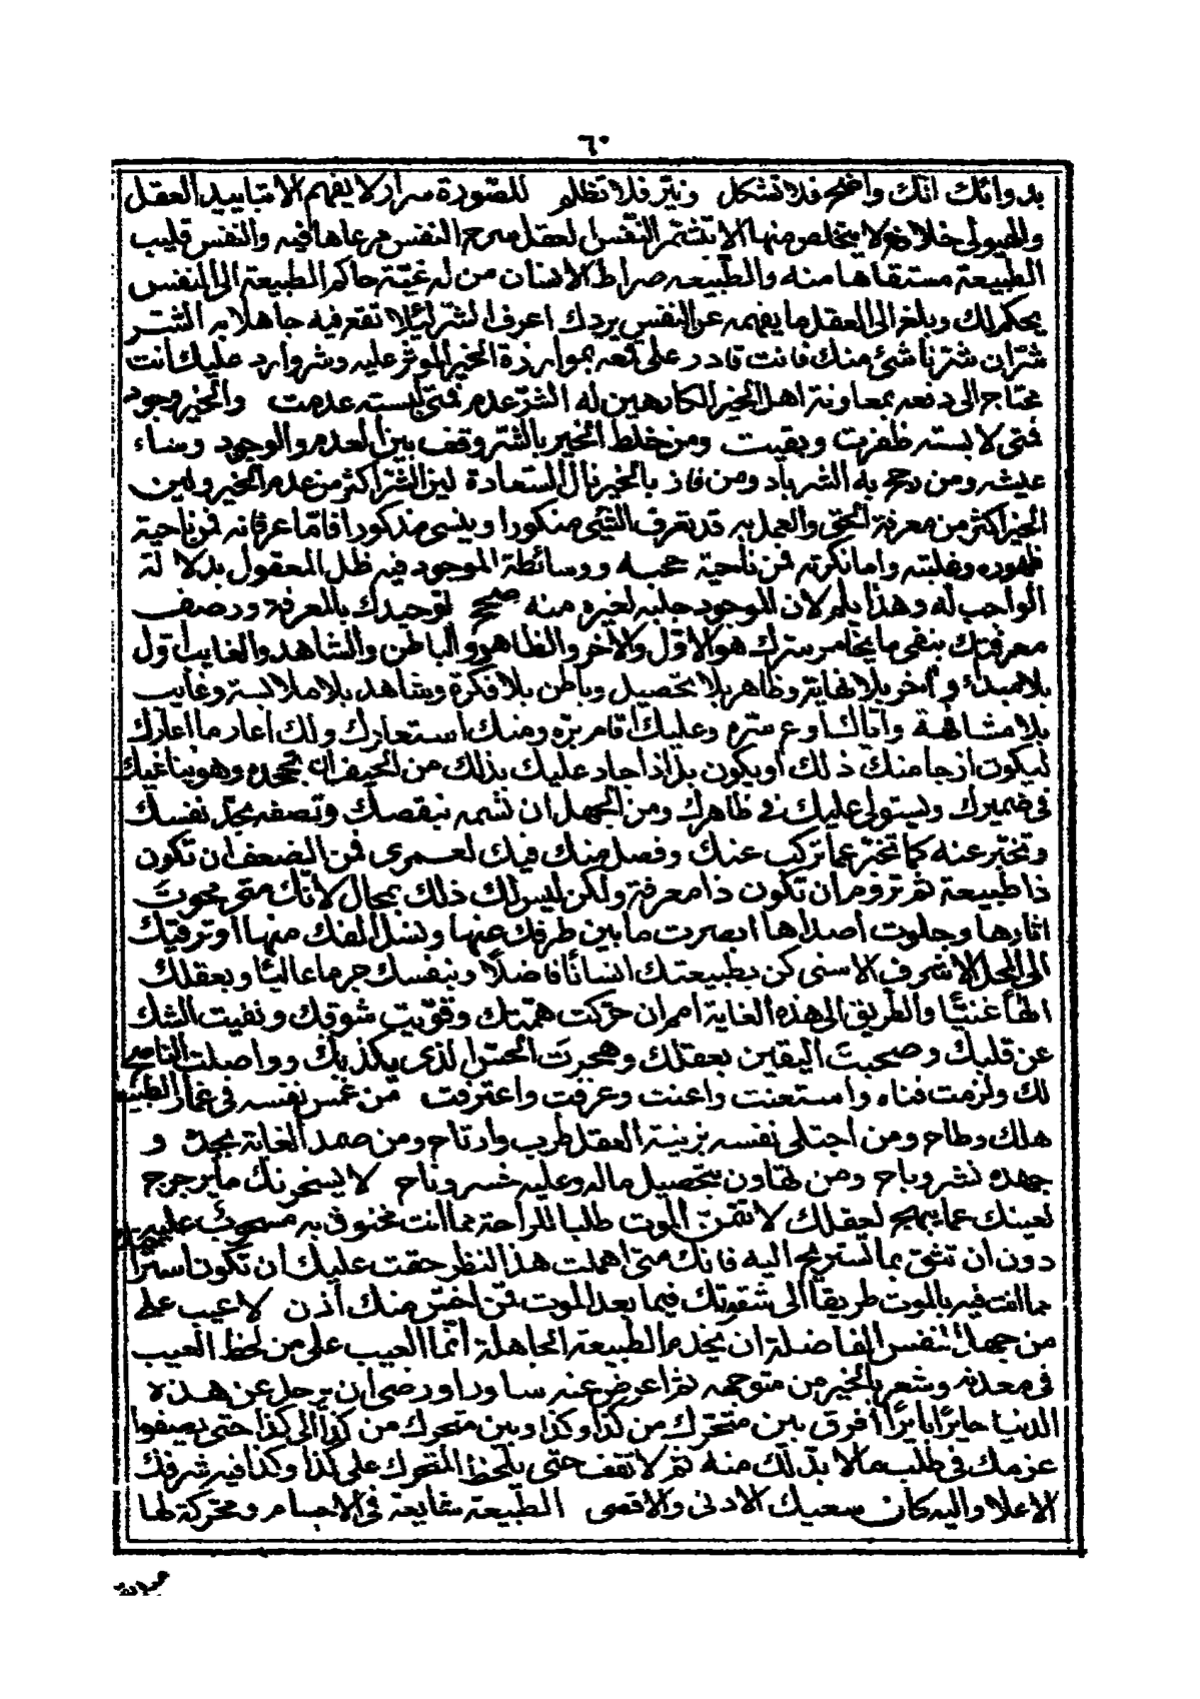 ٦٠
بد وانك انك واضح فلا تشكل ونير فلا تظلم للصورة سرار لا يفهم الا بتاييد العقل
والهيولى خلاف ولا يتخلص منها الا بتشمر النفس العقل مسرح النفس مرعاها فيه والنفس قليب
الطبيعة مستقاها منه والطبيعه صراط الانسان من له غيّة حاكم الطبيعة الى النفس
يحكم لك وبلغ الى العقل ما يفهمه عن النفس يردك اعرف الشر لئلا تقع فيه جاهلا به الشر
شران شر ناشئ منك فانت قادر على قمعه بموازرة الخير الموثر عليه وشر وارد عليك انت
محتاج الى دفعه بمعاونة اهل الخير الكارهين له الشر عدم فمتى لبسته عدمت والخير وجود
فمتى لابسته ظفرت وبقيت ومن خلط الخير بالشر وقف بين العدم والوجود وساء
عيشه ومن رجح به الشر باد ومن فاز بالخير نال السعادة لين الشر اكثر من عدم الخير ولين
الخير اكثر من معرفة الحق والعمل به قد يعرف الشئ منكورا وينسى مذكورا فاما عرفانه فمن ناحية
ظهوره وغلبته واما نكرته فمن ناحية حجبه ووسائطة الموجود فيه ظل المعقول بدلالة
الواجب له وهذا يلم لان الموجود جلبه لغيره منه صحح توحيدك بالمعرفة ورصف
معرفتك بنفى ما يخامر سرك هو الاول والاخر والظاهر والباطن والشاهد والغايب اول
بلا مبدء واخر بلا نهاية وظاهر بلا تحصيل وباطن بلا فكرة وشاهد بلا ملابسة وغايب
بلا مشابهة واياك اوع سره وعليك اقام بره ومنك استعارك ولك اعار ما اعارك
ليكون ازجا منك ذلك او يكون بذا اجاد عليك بذلك من الحيف ان تجحده وهو يناغيك
فى ضميرك ويستولى عليك فى ظاهرك ومن الجهل ان تسمه بنقصك وتصفه بحد نفسك
وتخبر عنه كما تخبر عما تركب عنك وفصل منك فيك لعمرى فمن الضعف ان تكون
ذا طبيعة ثم تروم ان تكون ذا معرفة ولكن ليس لك ذلك بمحال لانك متى محوت
اثارها وجلوت اصداها ابصرت ما بين طرفك عنها ونسل الفك منها او ترقيك
الى المحل الاشرف الاسنى كن بطبيعتك انسانا فاضلا وبنفسك جرما عاليا وبعقلك
الها غنيا والطريق الى هذه الغاية امم ان حركت همتك وقويت شوقك ونفيت الشك
عن قلبك وصحبت اليقين بعقلك وهجرت الحس الذى يكذبك وواصلت الناصح
لك ولزمت فناه واستعنت واعنت وعرفت واعترفت من غمس نفسه فى غمار الطبيعة
هلك وطاح ومن اجتلى نفسه بزينة العقل طرب وارتاح ومن صمد الغاية بجده و
جهده نشر وباح ومن تهاون بتحصيل ماله وعليه خسر وناح لا يسخرنك ما يرجرج
لعينك عما يبهج لعقلك لا تتمن الموت طلبا للراحة مما انت مخنوق به مسحوب عليه
دون ان تثق بما تستريح اليه فانك متى اهملت هذا النظر حقت عليك ان تكون اسرا
مما انت فيه بالموت طريقا الى شقوتك فيما بعد الموت فمن اخسر منك اذن لا عيب على
من جهل النفس الفاضلة ان يخدم الطبيعة الجاهلة انما العيب على من لحظ العيب
فى معدنه وشعر بالخير من متوجهه ثم اعرض عنه سادرا ورضى ان يرحل عن هذه
الدنيا حايرا بايرا افرق بين متحرك من كذا وكذا وبين متحرك من كذا الى كذا حتى يصفوا
عزمك فى طلب ما لا بد لك منه ثم لا تقف حتى يلحظ المتحرك على كذا وكذا فبه شرفك
الاعلا واليه كان سعيك الادنى والاقصى الطبيعة شايعة فى الاجسام ومحركة لها